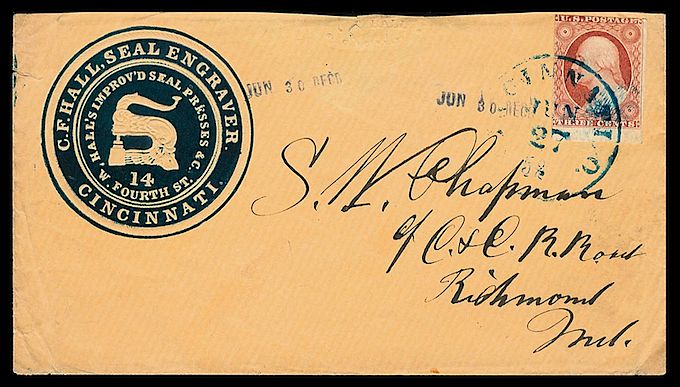 C.F. HALL, SEAL ENGRAVER.
HALL'S IMPROV'D SEAL PRESSES &C.
14
W. FOURTH ST.
CINCINNATI.
JUN 30 RECD
JUN 30 RECD
U.S. POSTAGE
THREE CENTS
CINNATI O.
JUN
27
S. W. Chapman
of C. & C. R. Road
Richmond
Ind.